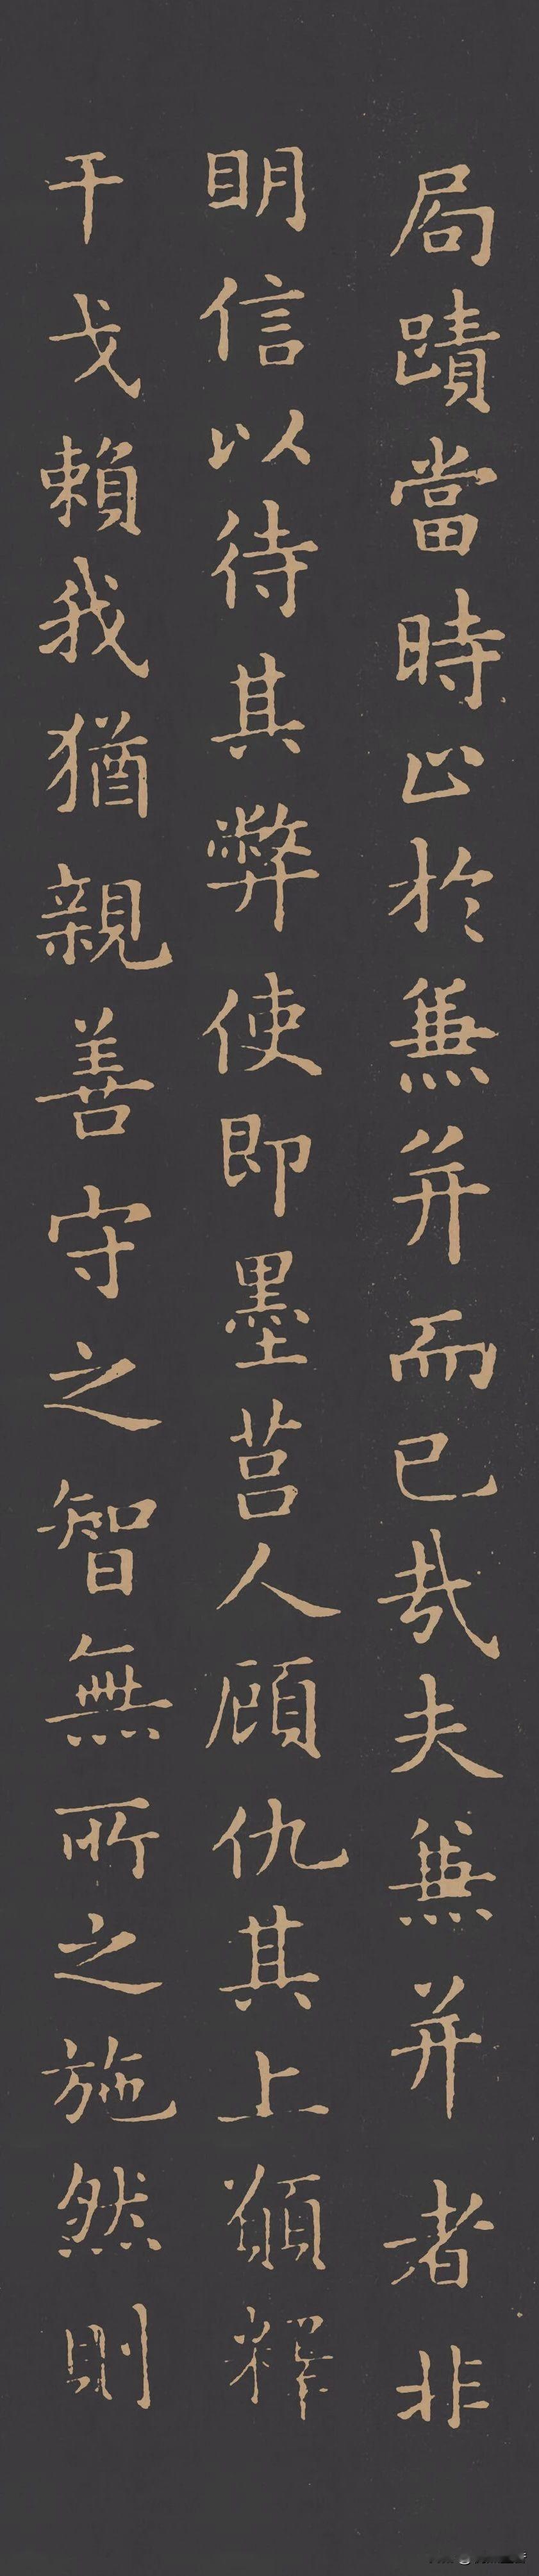 局蹟當時止於兼并而已哉夫兼并者非
眀信以待其弊使即墨莒人顧仇其上願釋
干戈賴我猶親善守之智無所之施然則